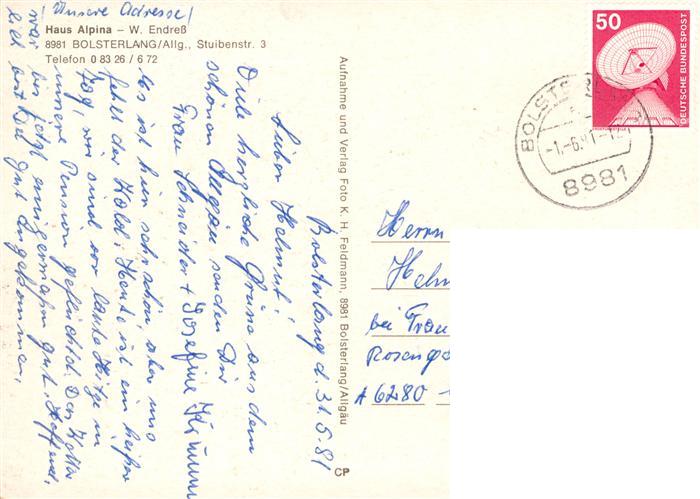 (Unsere Adresse)
Haus Alpina – W. Endreß
8981 BOLSTERLANG/Allg., Stuibenstr. 3
Telefon 0 83 26 / 6 72
Bolsterlang d. 31.5.81
Lieber Helmut!
Viele herzliche Grüße aus dem
schönen Allgäu senden Dir
Frau Schneider + Josefine
Es ist hier sehr schön, aber uns
fehlt der Wald. Heute ist ein heißer
Tag, wir sind vor lauter Hitze in
unsere Pension geflüchtet. Das Wetter
war bis jetzt einigermaßen gut. Hoffend,
gut angekommen.
Aufnahme und Verlag Foto K. H. Feldmann, 8981 Bolsterlang/Allgäu
CP
50
DEUTSCHE BUNDESPOST
BOLSTE
-1.-6.81-12
8981
Herrn
Helm
bei Frau
Roseng
A 6280